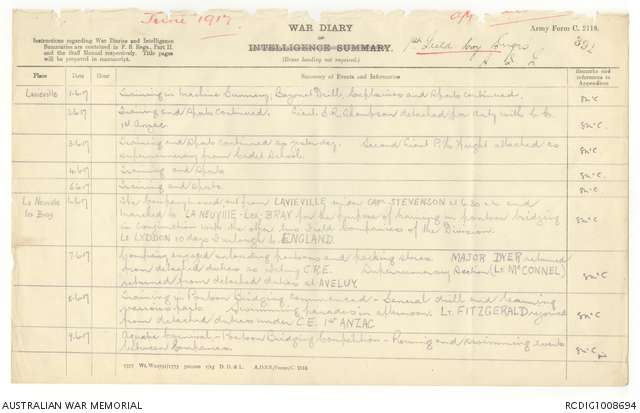 June 1917
WAR DIARY
or
INTELLIGENCE SUMMARY.
(Erase heading not required.)
Army Form C. 2118.
Instructions regarding War Diaries and Intelligence
Summaries are contained in F. S. Regs., Part II.
and the Staff Manual respectively. Title pages
will be prepared in manuscript.
1st Field Coy Engrs
Place
Date
Hour
Summary of Events and Information
Remarks and
references to
Appendices
Lavieville
1-6-17
Training in Machine Gunnery, Bayonet Drill, Explosives and Sports continued.
2-6-17
Training and Sports continued. Lieut. S.R. Thompson detached for duty with C.E.
1st Anzac
3-6-17
Training and Sports continued as yesterday. Second Lieut P. Wright attached as
supernumerary from Cadet School.
4-6-17
Training and Sports
5-6-17
Training and Sports
La Neuville
les Bray
6-6-17
The company moved out from LAVIEVILLE under CAPT STEVENSON at 6.30 a.m. and
marched to LA NEUVILLE-LES-BRAY for the purpose of training in pontoon bridging
in conjunction with the other two Field Companies of the Division
Lt LYDDON 10 days leave to ENGLAND.
7-6-17
Company engaged unloading pontoons and parking stores. MAJOR DYER returned
from detached duties as Acting C.R.E. Supernumerary Section (Lt McCONNEL)
returned from detached duties at AVELUY.
8-6-17
Training in Pontoon Bridging commenced - General drill and learning
various parts. Swimming parades in afternoon. Lt. FITZGERALD rejoined
from detached duties under C.E. 1st ANZAC
9-6-17
Aquatic Carnival - Pontoon Bridging Competition - Rowing and swimming events
between Companies.
AUSTRALIAN WAR MEMORIAL
RCDIG1008694